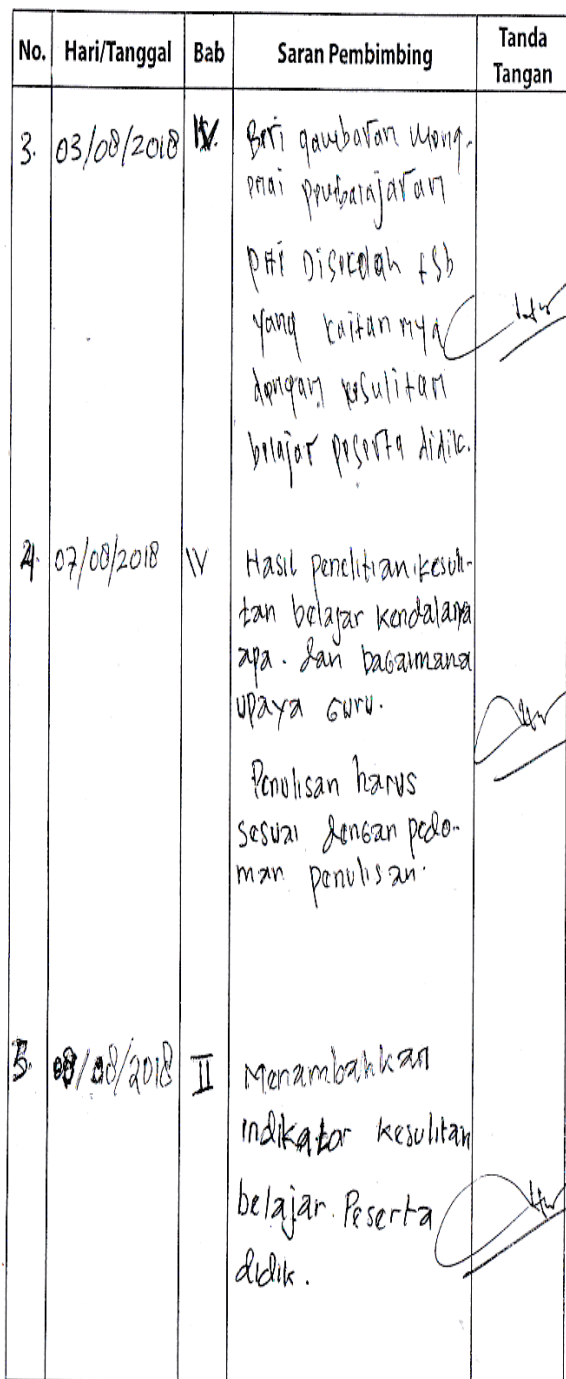 No. Hari/Tanggal Bab Saran Pembimbing Tanda Tangan
3. 03/08/2018 IV. Beri gambaran meng-
enai pembelajaran
PAI Disekolah tsb
yang kaitannya
dengan kesulitan
belajar peserta didik.
4. 07/08/2018 IV Hasil penelitian kesuli-
tan belajar kendalanya
apa. dan bagaimana
upaya Guru.
Penulisan harus
sesuai dengan pedo-
man penulisan.
5. 08/08/2018 II Menambahkan
indikator kesulitan
belajar. Peserta
didik.